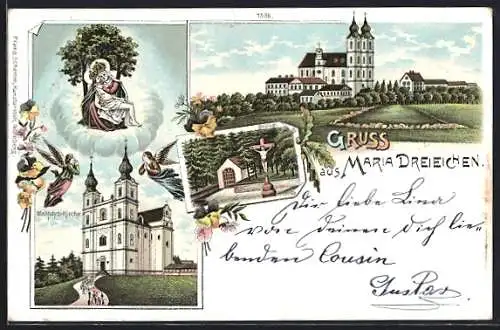 1506.
GRUSS
AUS
MARIA DREIEICHEN.
Wallfahrts-Kirche
Dir liebe Lina
von deinen dich lie-
benden Cousin
Gustav